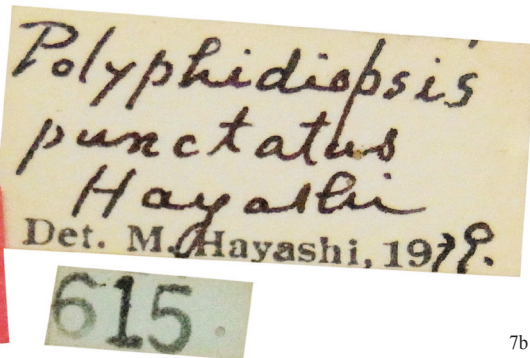 Polyphidiopsis
punctatus
Hayashi
Det. M. Hayashi, 1979.
615
7b